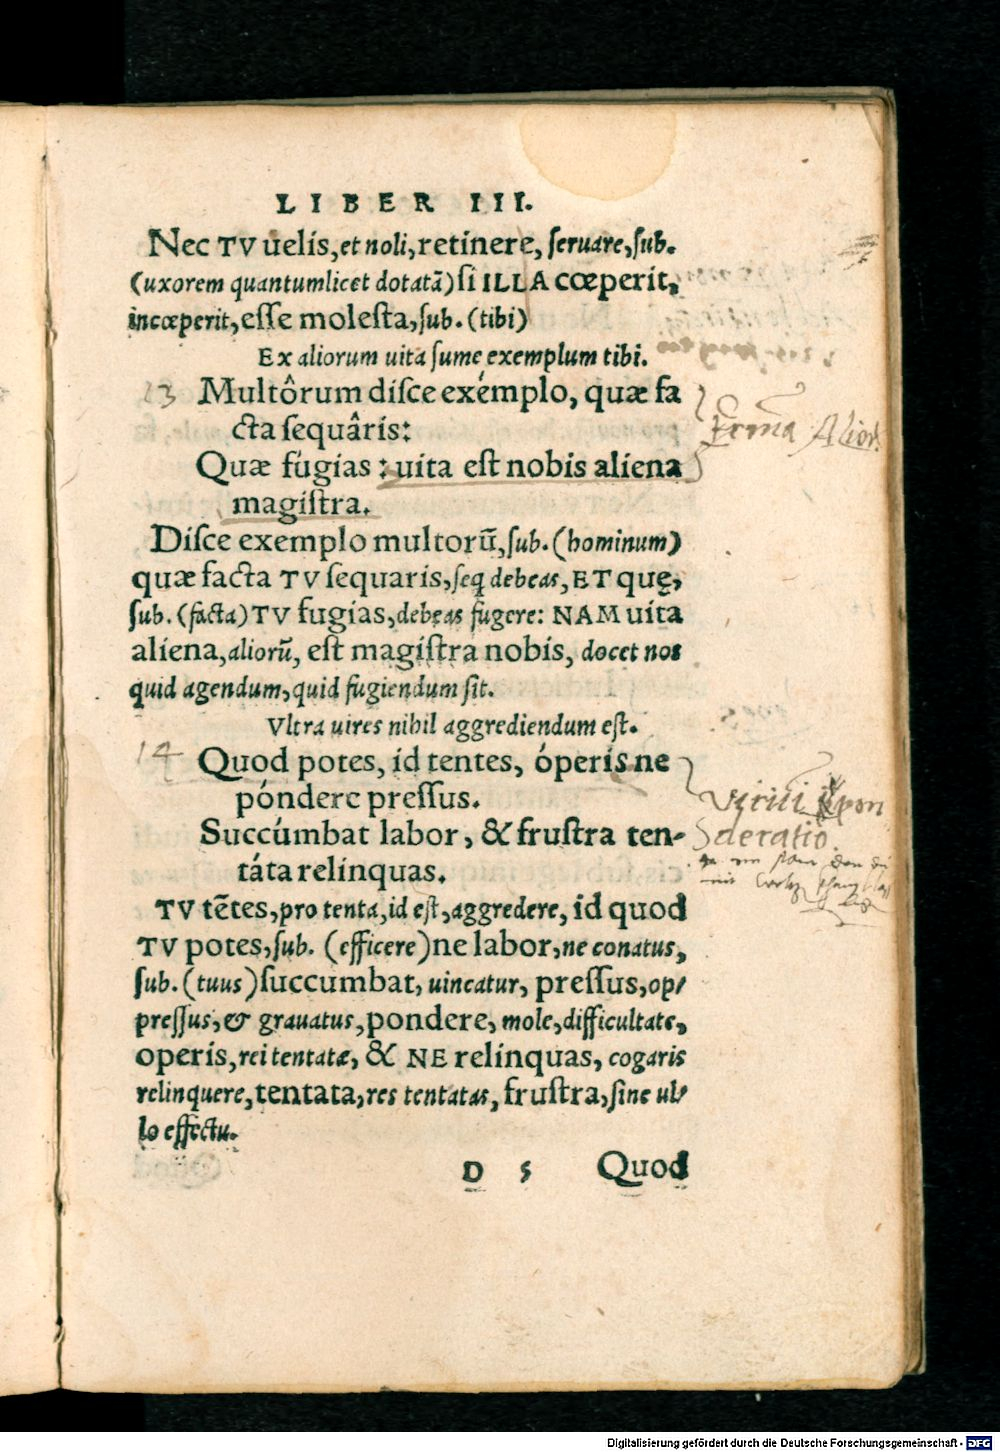 LIBER III.
Nec TV uelis, et noli, retinere, ſeruare, ſub.
(uxorem quantumlicet dotatā) ſi ILLA cœperit,
incœperit, eſſe moleſta, ſub. (tibi)
Ex aliorum uita ſume exemplum tibi.
13 Multôrum diſce exémplo, quæ fa
cta ſequâris:
Quæ fúgias : uita eſt nobis aliena
magiſtra.
Diſce exemplo multorũ, ſub. (hominum)
quæ facta TV ſequaris, ſeq debeas, ET quę,
ſub. (facta) TV fugias, debeas fugere: NAM uita
aliena, aliorũ, eſt magiſtra nobis, docet nos
quid agendum, quid fugiendum ſit.
Vltra uires nihil aggrediendum eſt.
14 Quod potes, id tentes, óperis ne
póndere preſſus.
Succúmbat labor, & fruſtra ten-
táta relinquas.
TV tẽtes, pro tenta, id eſt, aggredere, id quod
TV potes, ſub. (efficere) ne labor, ne conatus,
ſub. (tuus) ſuccumbat, uincatur, preſſus, op-
preſſus, & grauatus, pondere, mole, difficultate,
operis, rei tentatæ, & NE relinquas, cogaris
relinquere, tentata, res tentatas, fruſtra, ſine ul-
lo effectu.
D 5 Quod
Alior
deratio.
Digitalisierung gefördert durch die Deutsche Forschungsgemeinschaft - DFG